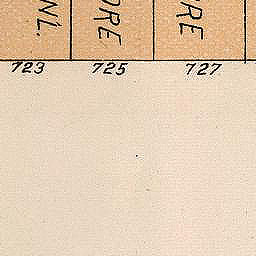 N'L.
ORE
ORE
723 725 727